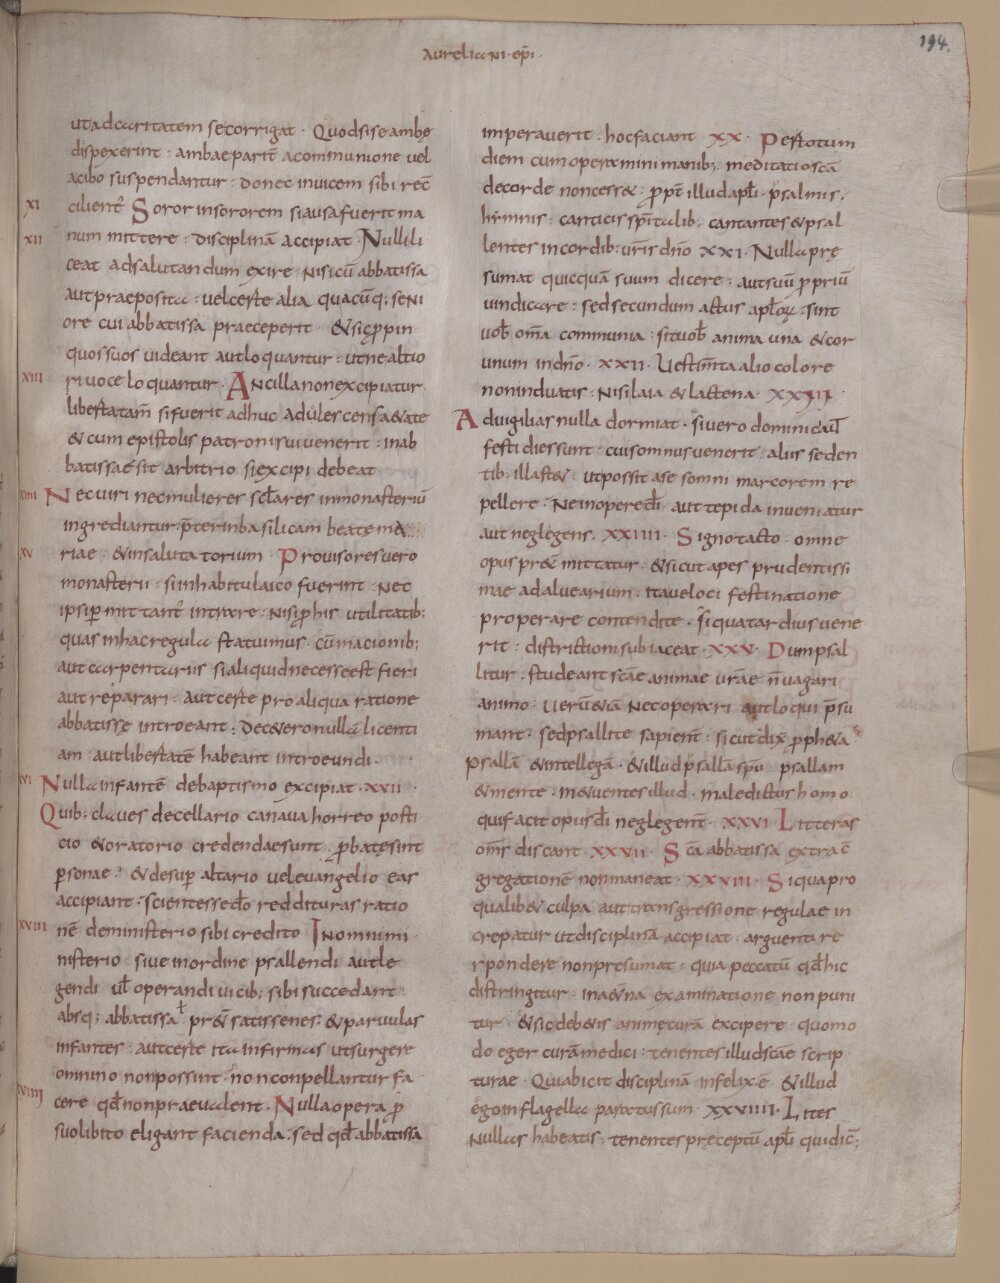 aureliani · epi ·
194.
utad caritatem se corrigat · Quodsi se ambę
dispexerint · ambae parit̄ a communione vel
acibo suspendantur · donec invicem sibi rec̄
XI
cilient᷑ Soror in sororem si ausa fuerit ma
XII
num mittere · disciplinā accipiat · Nulli li
ceat ad salutandum exire · nisi cū abbatissa
aut praeposita · vel certe alia quacūq; seni
ore cui abbatissa praeceperit · & sic ꝓpin
quos suos videant aut loquantur · ut ne altio
XIII
ri voce loquantur · Ancilla non excipiatur
libertatam̄ si fuerit adhuc adulescens aetate
& cum epistolis patroni sui venerit · in ab
batissae sit arbitrio si excipi debeat
XIIII
Nec viri nec mulieres sclares in monasteriū
ingrediantur · p̄ter in basilicam beate ma
XV
riae · & in salutatorium · Provisores vero
monasterii · si in habitu laico fuerint nec
ipsi ꝑmittant᷑ intrare · nisi ꝓ his utilitatib;
quas in hac regula statuimus · cū macionib;
aut carpentariis si aliquid necesse est fieri
aut reparari · aut certe pro aliqua ratione
abbatissę introeant · Deceṫero nullā licenti
am · aut libertatē habeant introeundi ·
XVI
Nulla infantē de baptismo excipiat · XVII ·
Quib; claves de cellario canava horreo posti
cio & oratorio credendae sunt · ꝓbatę sint
ꝑsonae · & desuꝑ altario vel evangelio eas
accipiant · scientes se do reddituras ratio
XVIII
nē de ministerio sibi credito In omni mi
nisterio · sive in ordine psallendi aut le
gendi vl operandi vicib; sibi succedant
absq; abbatissa pr& satis senes · & parvulas
infantes · aut certe ita infirmas ut surgere
omnino non possint · non conpellantur fa
XVIIII
cere qd non praevalent · Nulla opera ꝓ
suo libito eligant facienda · sed qd abbatissa
imperaverit · hoc faciant XX · Per totum
diem cum opera mini manib; meditatio scā
de corde non cess& · ꝓpt̄ illud apli · psalmis ·
hymnis · canticis spītalib; cantantes & psal
lentes in cordib; vr̄is dn̄o XXI · Nulla prę
sumat quicquā suum dicere · aut suū ꝓpriū
vindicare · sed secundum actus aplorꝝ · sint
vob om̄a communia · sit vob anima una & cor
unum in dn̄o · XXII · Vestim̄ta alio colore
non induatis · nisi laia & lactena · XXIII ·
Ad vigilias nulla dormiat · si vero dominici aut
festi dies sunt · cui somnus venerit · aliis seden
tib; illa st& · ut possit a se somni marcorem re
pellere · Ne in opere di aut tepida inveniatur
aut neglegens · XXIIII · Signo tacto · omne
opus pr&mittatur · & sicut apes prudentissi
mae ad alvearium · ita veloci festinatione
properare contendite · Si qua tardius vene
rit · districtioni subiaceat · XXV · Dum psal
litur · studeant scāe animae vr̄ae n̄ vagari
animo · Verū &iā nec operari aut loqui p̄su
mant · sed psallite sapient̄ · sicut dix̄ ꝓph&a
psallā & intellegā · & illud psallā spū psallam
& mente · m&uentes illud · maledictus homo
qui facit opus di neglegent̄ · XXVI Litteras
om̄s discant · XXVII · Sca abbatissa extra c̄
gregationē non maneat · XXVIII · Si qua pro
qualib& culpa aut transgressione regulae in
crepatur ut disciplinā accipiat · arguenti re
spondere non presumat · quia peccatū qd hic
distringitur · in aet̄na examinatione non puni
tur · & sic deb&is animę curā excipere · quomo
do eger curā medici · tenentes illud scāe scrip
turae · Qui abicit disciplinā infelix ē & illud
ego in flagella paratus sum · XXVIIII · Lites
nullas habeatis · tenentes pręceptū apli qui dic̄;